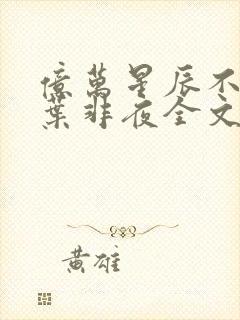 億萬星辰不
葉非夜全文
黃雄